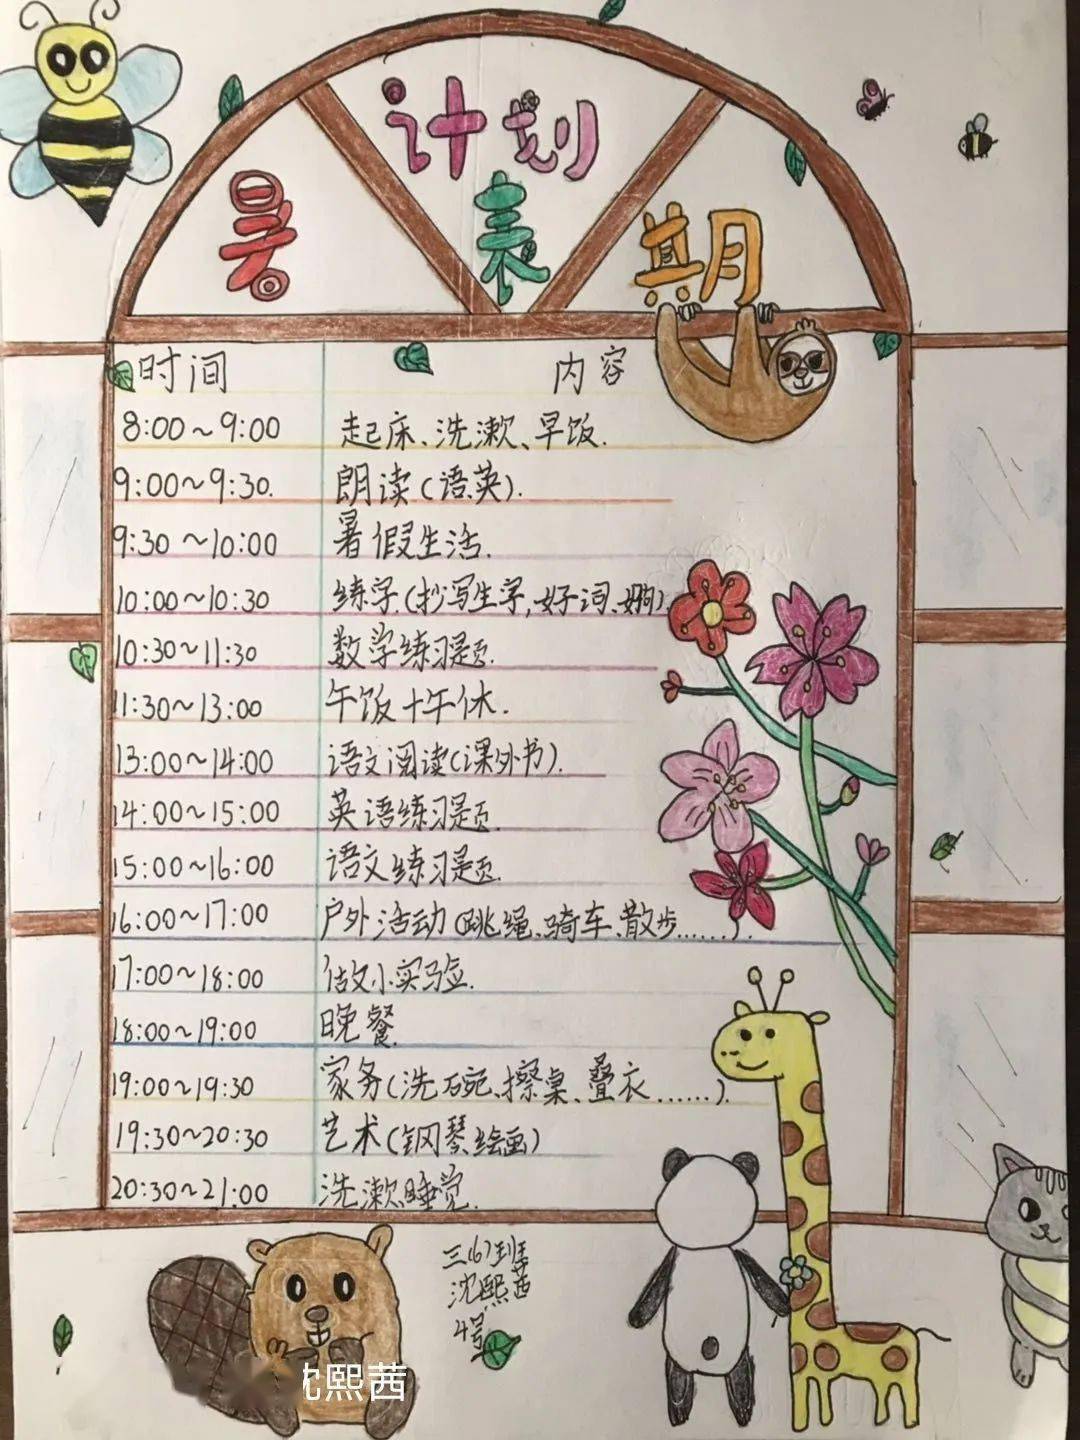 暑期
计划
表
时间 内容
8:00~9:00 起床、洗漱、早饭.
9:00~9:30. 朗读(语.英).
9:30~10:00 暑假生活.
10:00~10:30 练字(抄写生字,好词、好句).
10:30~11:30 数学练习题.
11:30~13:00 午饭+午休.
13:00~14:00 语文阅读(课外书).
14:00~15:00 英语练习题.
15:00~16:00 语文练习题.
16:00~17:00 户外活动(跳绳、骑车、散步......).
17:00~18:00 做小实验.
18:00~19:00 晚餐.
19:00~19:30 家务(洗碗、擦桌、叠衣......).
19:30~20:30 艺术(钢琴绘画)
20:30~21:00 洗漱.睡觉.
三(6)班
沈熙茜
4号
沈熙茜